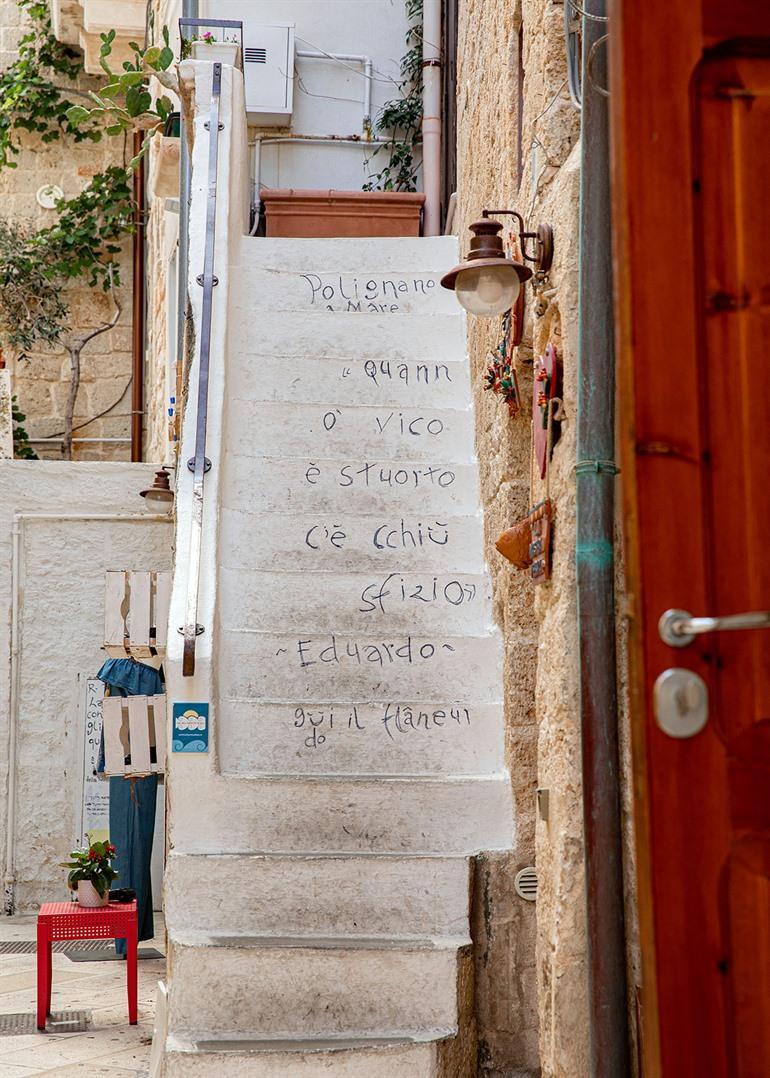 Polignano
a Mare
“Quann
o' vico
è stuorto
c'è cchiù
sfizio”
~Eduardo~
gui il flâneur
do